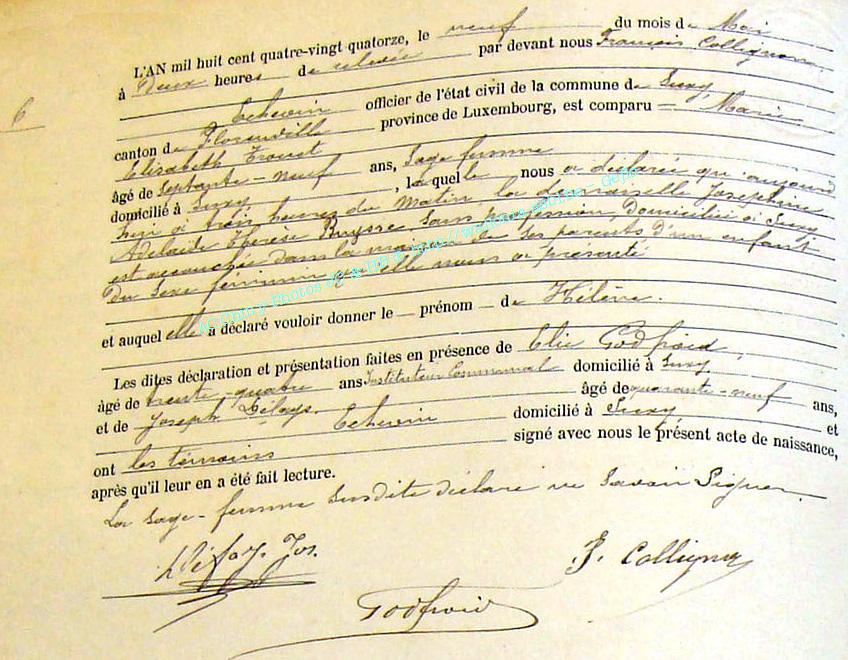 L'AN mil huit cent quatre-vingt quatorze, le neuf du mois de Mai
à Deux heures de relevée par devant nous François Collignon
Echevin officier de l'état civil de la commune de Suxy
canton de Florenville province de Luxembourg, est comparu = Marie
Elisabeth
âgé de Septante-neuf ans, Sage femme
domicilié à Suxy, la quelle nous a déclaré qu'aujourd
hui à trois heures du Matin, la demoiselle Joséphine
Adelaïde Thérèse sans profession, Domiciliée à Suxy
est accouchée dans la maison de ses parents d'un enfant
Du Sexe féminin qu'elle nous a présenté
et auquel elle a déclaré vouloir donner le — prénom — de Hélène.
Les dites déclaration et présentation faites en présence de Elie Godfroid,
âgé de trente-quatre ans Instituteur Communal domicilié à Suxy
et de Joseph âgé de quarante-neuf ans,
Echevin domicilié à Suxy et
ont les témoins signé avec nous le présent acte de naissance,
après qu'il leur en a été fait lecture.
La sage-femme susdite déclare ne savoir Signer.
Jos. F. Collignon
Godfroid
6